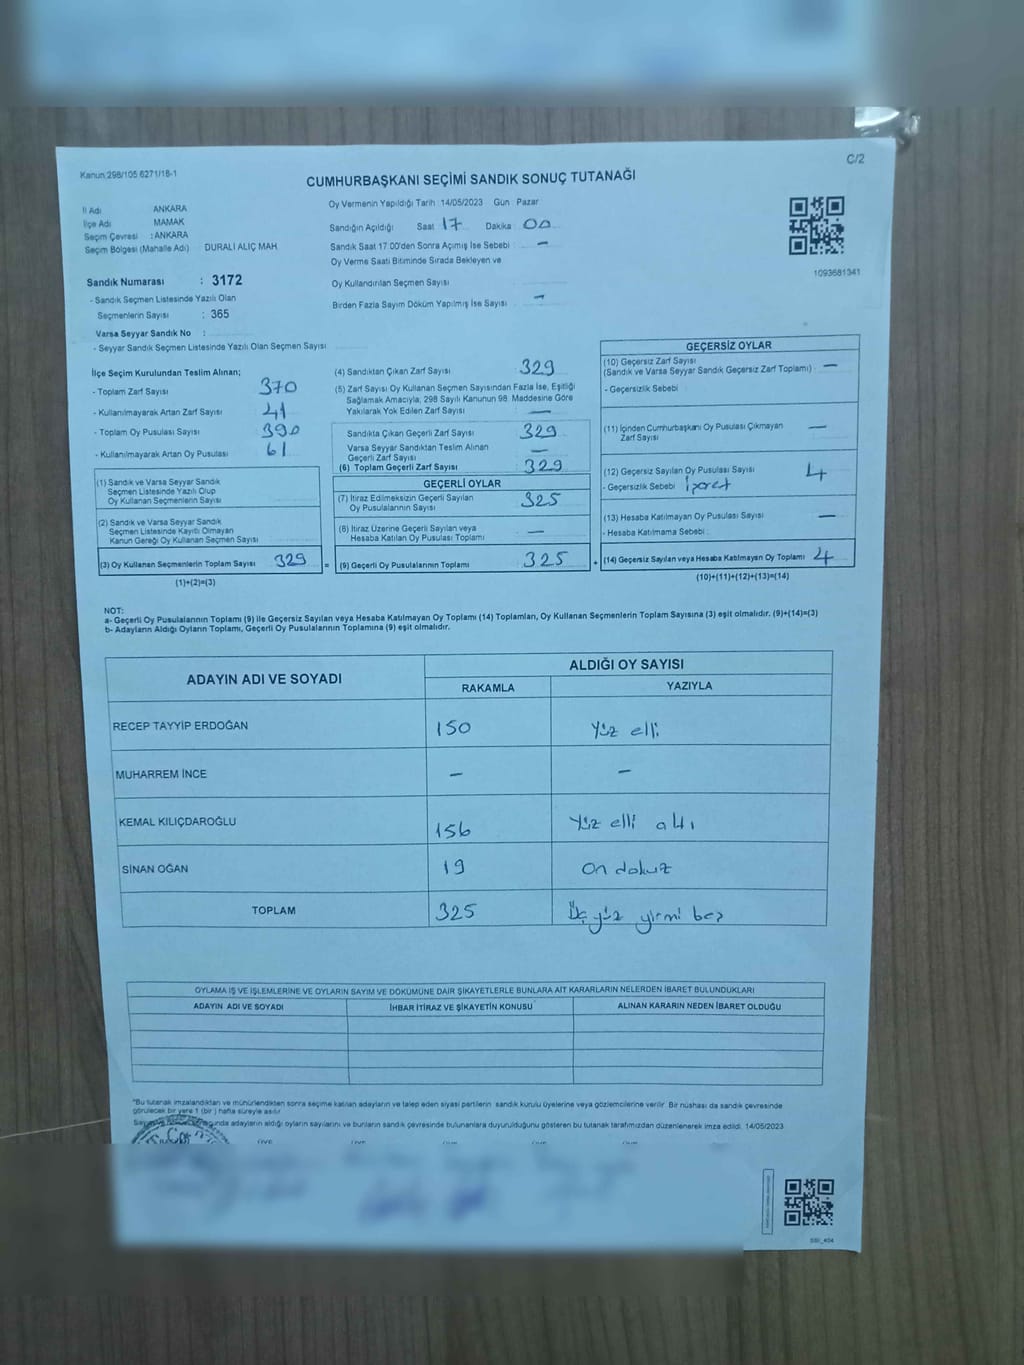 C/2
Kanun.298/105 6271/18-1
CUMHURBAŞKANI SEÇİMİ SANDIK SONUÇ TUTANAĞI
İl Adı ANKARA
İlçe Adı MAMAK
Seçim Çevresi : ANKARA
Seçim Bölgesi (Mahalle Adı) DURALİ ALIÇ MAH.
Oy Vermenin Yapıldığı Tarih 14/05/2023 Gün : Pazar
Sandığın Açıldığı Saat 17 Dakika 00
Sandık Saat 17:00'den Sonra Açımış İse Sebebi : -
Oy Verme Saati Bitiminde Sırada Bekleyen ve
Oy Kullandırılan Seçmen Sayısı
Birden Fazla Sayım Döküm Yapılmış İse Sayısı -
1093681341
Sandık Numarası : 3172
- Sandık Seçmen Listesinde Yazılı Olan
Seçmenlerin Sayısı : 365
Varsa Seyyar Sandık No :
- Seyyar Sandık Seçmen Listesinde Yazılı Olan Seçmen Sayısı
İlçe Seçim Kurulundan Teslim Alınan;
- Toplam Zarf Sayısı 370
- Kullanılmayarak Artan Zarf Sayısı 41
- Toplam Oy Pusulası Sayısı 390
- Kullanılmayarak Artan Oy Pusulası 61
(1) Sandık ve Varsa Seyyar Sandık
Seçmen Listesinde Yazılı Olup
Oy Kullanan Seçmenlerin Sayısı
(2) Sandık ve Varsa Seyyar Sandık
Seçmen Listesinde Kayıtlı Olmayan
Kanun Gereği Oy Kullanan Seçmen Sayısı
(3) Oy Kullanan Seçmenlerin Toplam Sayısı 329 =
(1)+(2)=(3)
(4) Sandıktan Çıkan Zarf Sayısı 329
(5) Zarf Sayısı Oy Kullanan Seçmen Sayısından Fazla İse, Eşitliği
Sağlamak Amacıyla, 298 Sayılı Kanunun 98. Maddesine Göre
Yakılarak Yok Edilen Zarf Sayısı -
Sandıkta Çıkan Geçerli Zarf Sayısı 329
Varsa Seyyar Sandıktan Teslim Alınan
Geçerli Zarf Sayısı -
(6) Toplam Geçerli Zarf Sayısı 329
GEÇERLİ OYLAR
(7) İtiraz Edilmeksizin Geçerli Sayılan
Oy Pusulalarının Sayısı 325
(8) İtiraz Üzerine Geçerli Sayılan veya
Hesaba Katılan Oy Pusulası Toplamı -
(9) Geçerli Oy Pusulalarının Toplamı 325 +
GEÇERSİZ OYLAR
(10) Geçersiz Zarf Sayısı
(Sandık ve Varsa Seyyar Sandık Geçersiz Zarf Toplamı) -
- Geçersizlik Sebebi :
(11) İçinden Cumhurbaşkanı Oy Pusulası Çıkmayan
Zarf Sayısı -
(12) Geçersiz Sayılan Oy Pusulası Sayısı 4
- Geçersizlik Sebebi İşaret
(13) Hesaba Katılmayan Oy Pusulası Sayısı -
- Hesaba Katılmama Sebebi :
(14) Geçersiz Sayılan veya Hesaba Katılmayan Oy Toplamı 4
(10)+(11)+(12)+(13)=(14)
NOT:
a- Geçerli Oy Pusulalarının Toplamı (9) ile Geçersiz Sayılan veya Hesaba Katılmayan Oy Toplamı (14) Toplamları, Oy Kullanan Seçmenlerin Toplam Sayısına (3) eşit olmalıdır. (9)+(14)=(3)
b- Adayların Aldığı Oyların Toplamı, Geçerli Oy Pusulalarının Toplamına (9) eşit olmalıdır.
ADAYIN ADI VE SOYADI ALDIĞI OY SAYISI
RAKAMLA YAZIYLA
RECEP TAYYİP ERDOĞAN 150 Yüz elli
MUHARREM İNCE - -
KEMAL KILIÇDAROĞLU 156 Yüz elli altı
SİNAN OĞAN 19 On dokuz
TOPLAM 325 Üç yüz yirmi beş
OYLAMA İŞ VE İŞLEMLERİNE VE OYLARIN SAYIM VE DÖKÜMÜNE DAİR ŞİKAYETLERLE BUNLARA AİT KARARLARIN NELERDEN İBARET BULUNDUKLARI
ADAYIN ADI VE SOYADI İHBAR İTİRAZ VE ŞİKAYETİN KONUSU ALINAN KARARIN NEDEN İBARET OLDUĞU
"Bu tutanak imzalandıktan ve mühürlendikten sonra seçime katılan adayların ve talep eden siyasi partilerin sandık kurulu üyelerine veya gözlemcilerine verilir. Bir nüshası da sandık çevresinde
görülecek bir yere 1 (bir) hafta süreyle asılır.
adayların aldığı oyların sayılarını ve bunların sandık çevresinde bulunanlara duyurulduğunu gösteren bu tutanak tarafımızdan düzenlenerek imza edildi. 14/05/2023